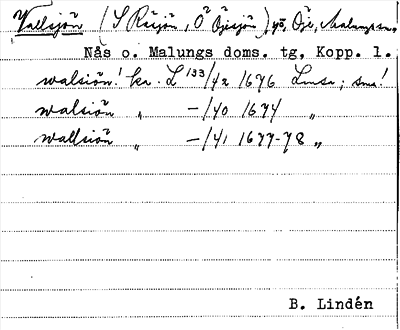 Vallsjön (S Räsjön, O Öjesjön) sö, Öje, Malungs sn,
Nås o. Malungs doms. tg, Kopp. l.
walsiön! ka. L 133/42 1696 Lmsa; sms!
walsiön " -/40 1674 "
wallsiön " -/41 1677-78 "
B. Lindén